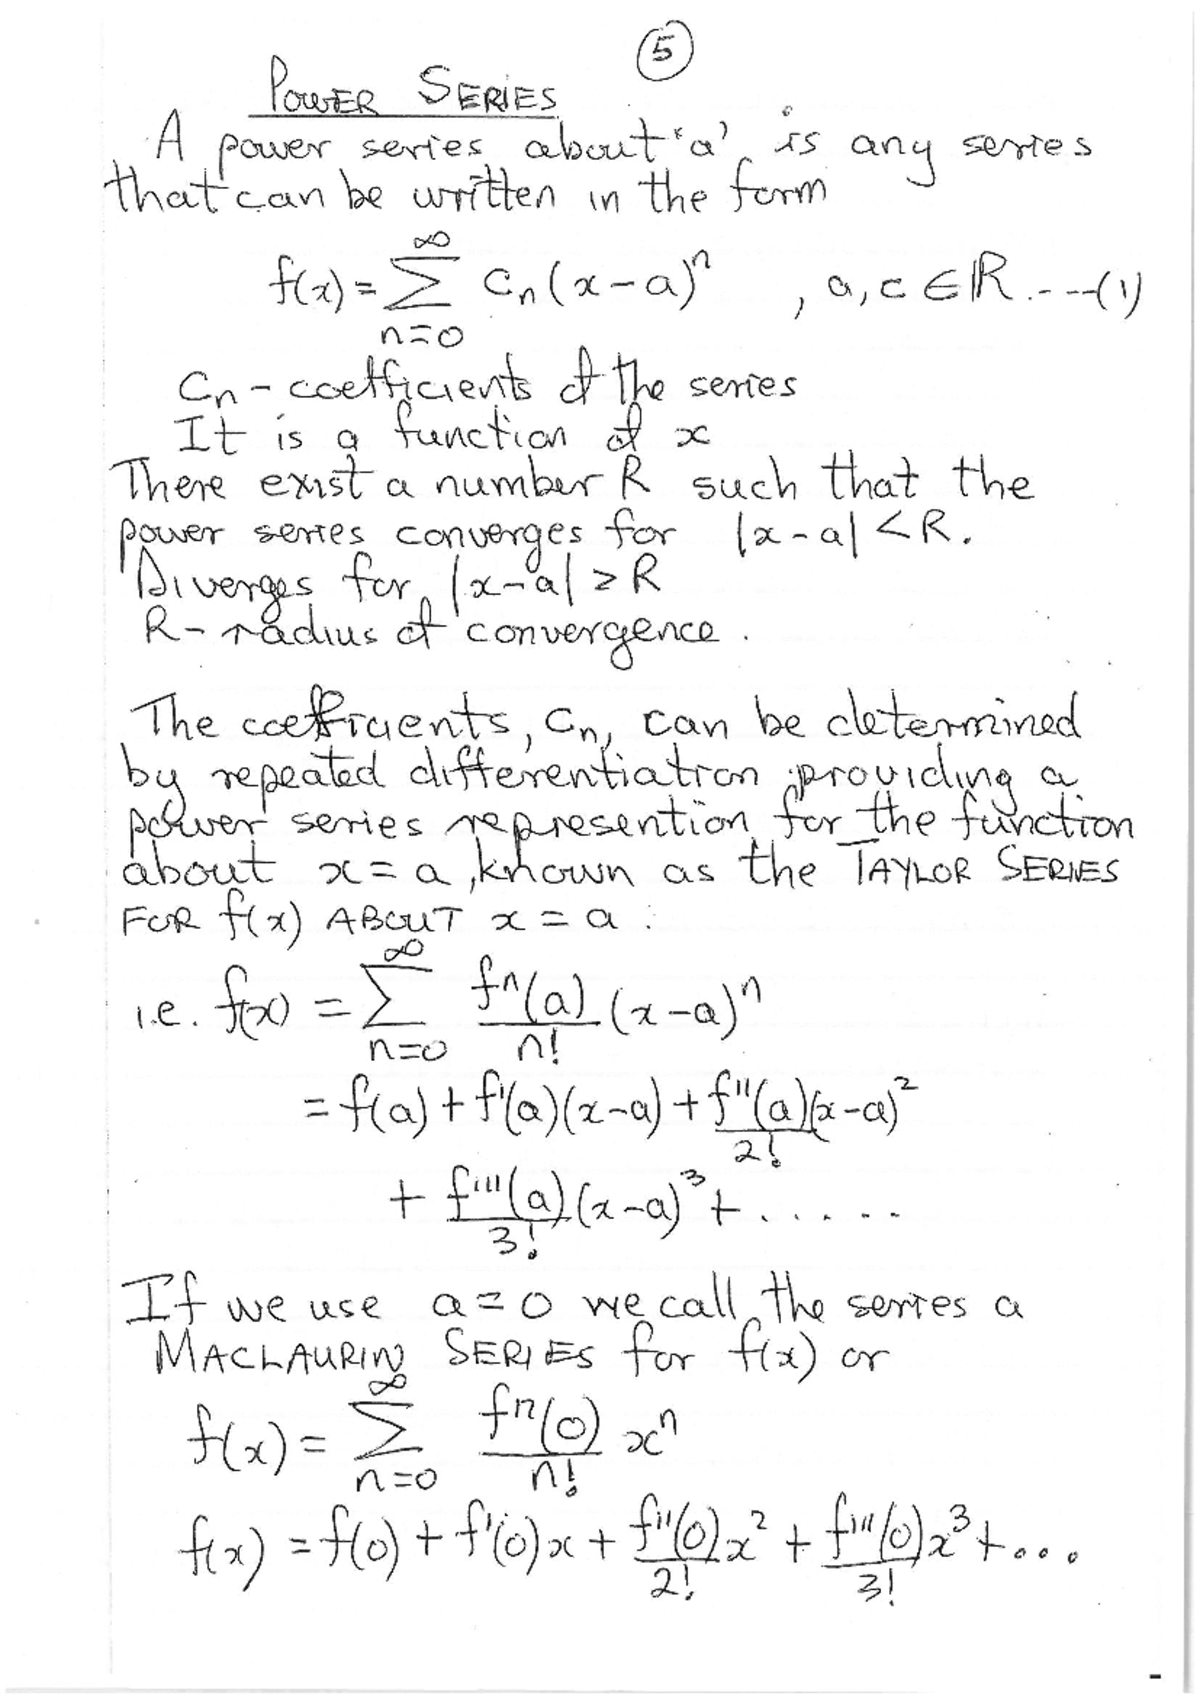 5
POWER SERIES
A power series about 'a', is any series
that can be written in the form
f(x) = ∞ Σ n=0 Cn (x-a)^n , a, c ∈ ℝ. ---(1)
Cn - coefficients of the series
It is a function of x
There exist a number R such that the
power series converges for |x-a| < R.
Diverges for |x-a| ≥ R
R - radius of convergence.
The coefficients, Cn, can be determined
by repeated differentiation providing a
power series represention for the function
about x = a, known as the TAYLOR SERIES
FOR f(x) ABOUT x = a :
i.e. f(x) = ∞ Σ n=0 f^n(a)/n! (x-a)^n
= f(a) + f'(a)(x-a) + f''(a)/2! (x-a)^2
+ f'''(a)/3! (x-a)^3 + .......
If we use a = 0 we call the series a
MACLAURIN SERIES for f(x) or
f(x) = ∞ Σ n=0 f^n(0)/n! x^n
f(x) = f(0) + f'(0)x + f''(0)/2! x^2 + f'''(0)/3! x^3 + ...